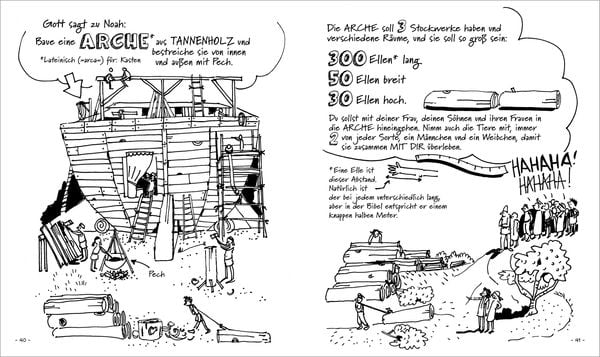 Gott sagt zu Noah:
Baue eine ARCHE* aus TANNENHOLZ und
bestreiche sie von innen
und außen mit Pech.
*Lateinisch (»arca«) für: Kasten
Pech
- 40 -
Die ARCHE soll 3 Stockwerke haben und
verschiedene Räume, und sie soll so groß sein:
300 Ellen* lang.
50 Ellen breit
30 Ellen hoch.
Du sollst mit deiner Frau, deinen Söhnen und ihren Frauen in
die ARCHE hineingehen. Nimm auch die Tiere mit, immer
2 von jeder Sorte, ein Männchen und ein Weibchen, damit
sie zusammen MIT DIR überleben.
*Eine Elle ist
dieser Abstand.
Natürlich ist
der bei jedem unterschiedlich lang,
aber in der Bibel entspricht er einem
knappen halben Meter.
HAHAHA!
HAHAHA!
- 41 -